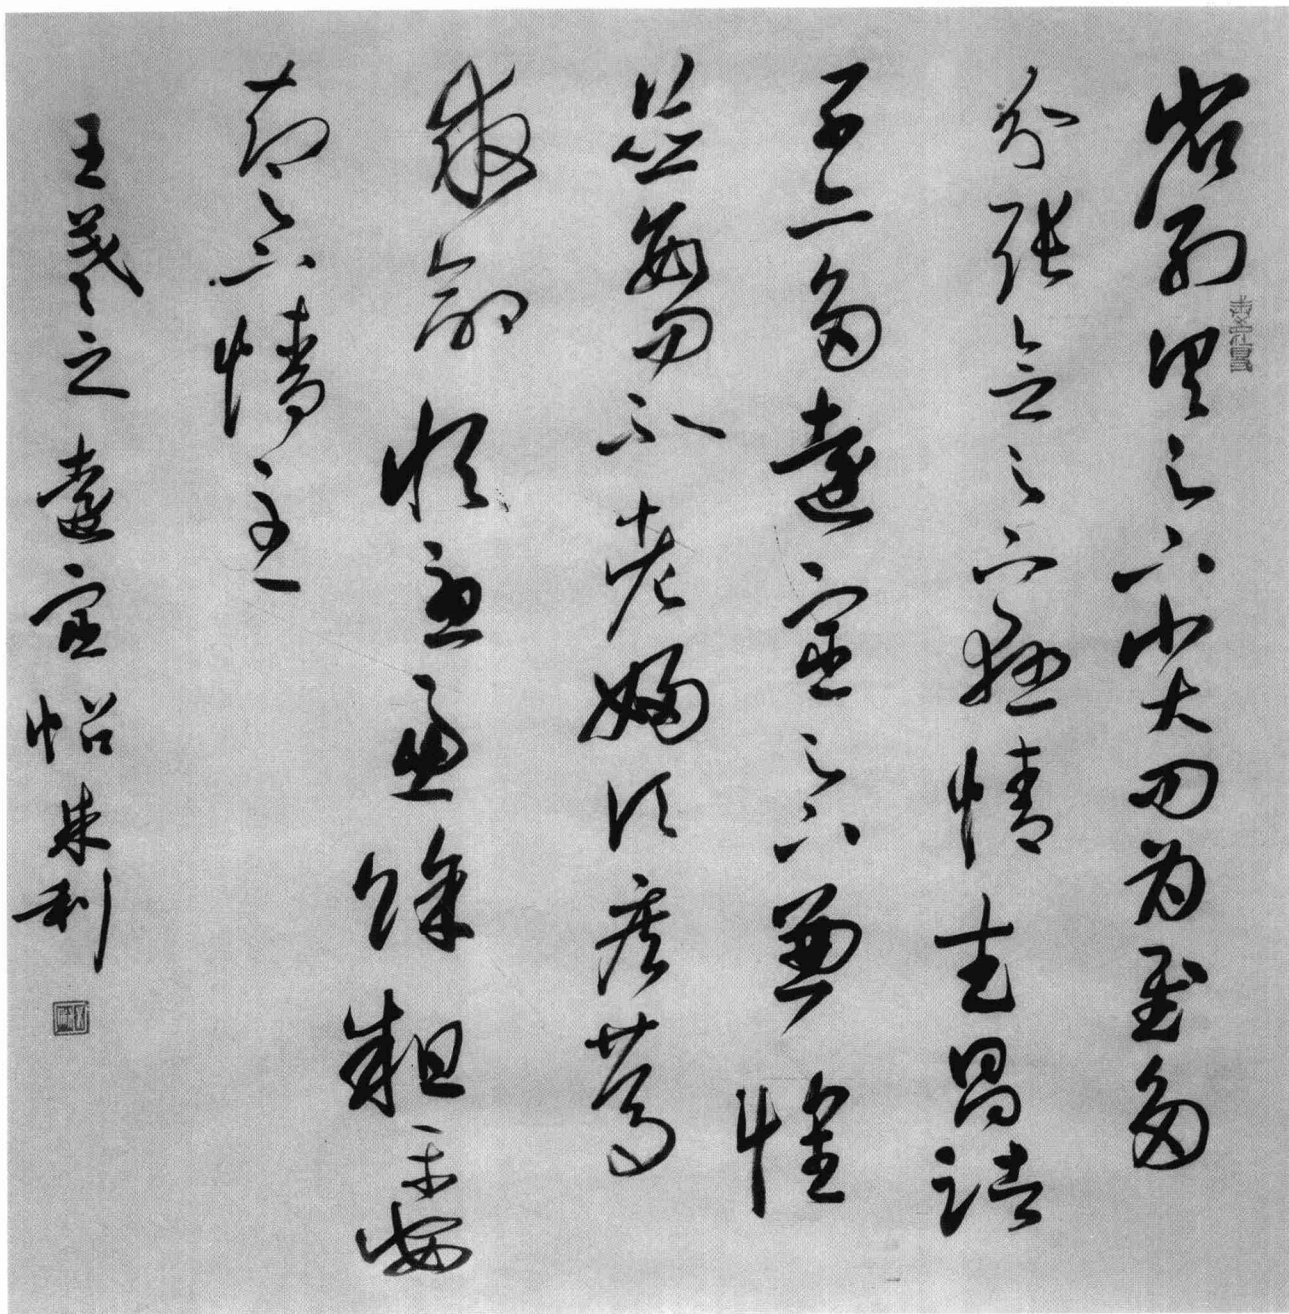 省別具足下小大問為慰多
分張念足下懸情武昌諸
子亦多遠宦足下兼懷
並數問不老婦頃疾篤
救命恒憂慮餘粗平安
知足下情至
王羲之遠宦帖朱利